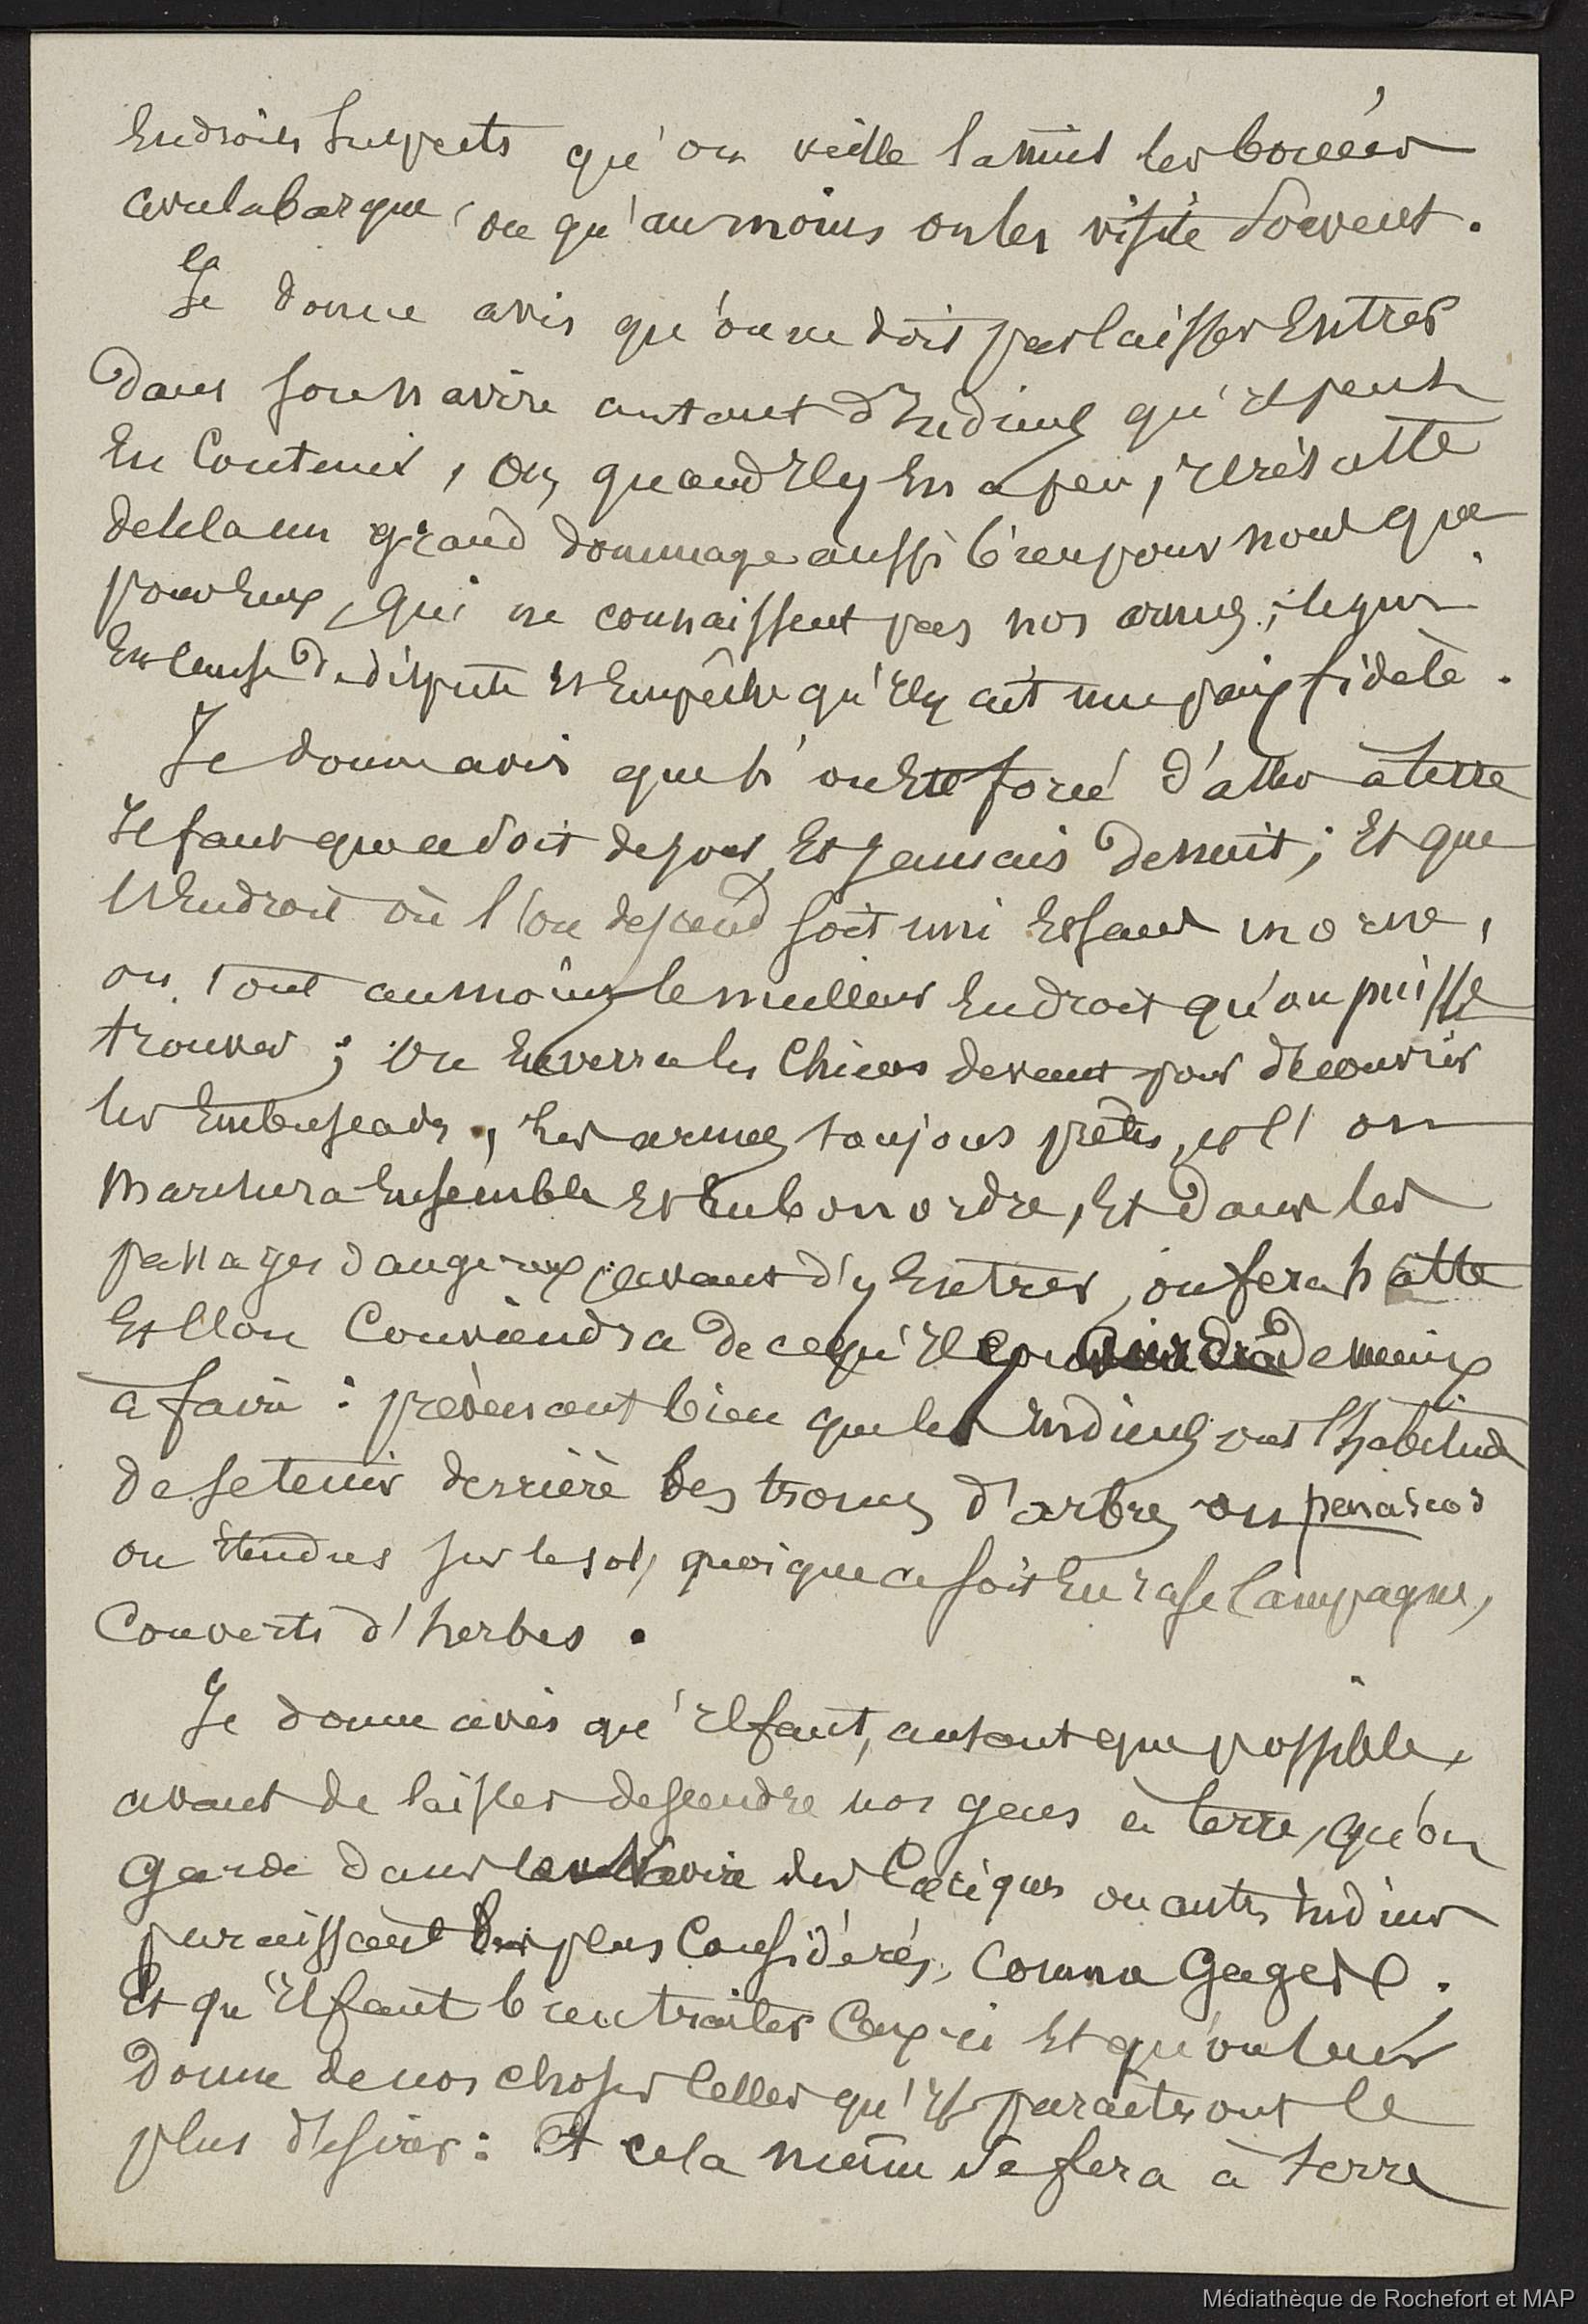 Endroits suspects qu'on veille la nuit les bouées
avec la barque, ou qu'au moins on les visite souvent.
Je donne avis qu'on ne doit pas laisser Entrer
Dans son navire autant d'Indiens qu'il peut
En Contenir, Or, quand Il y En a peu, Il résulte
de cela un grand dommage aussi bien pour nous que
pour Eux, qui ne connaissent pas nos armes; ce qui
Est cause De dispute Et Empêche qu'Il y ait une paix fidèle.
Je donne avis que si on Est forcé d'aller à terre
Il faut que ce soit de jour Et Jamais De nuit; Et que
l'Endroit où l'on descend soit uni Et sans morne,
ou tout au moins le meilleur Endroit qu'on puisse
trouver; On Enverra les Chiens devant pour découvrir
les Embuscades, les armes toujours prêtes, et l'on
Marchera Ensemble Et En bon ordre, Et Dans les
passages dangereux, avant d'y Entrer, on fera halte
Et l'on Conviendra De ce qu'Il conviendra De mieux
à faire: prévenant bien que les Indiens ont l'habitude
De se tenir derrière des troncs d'arbres ou peñascos
ou étendus sur le sol, quoique ce soit En rase Campagne,
Couverts d'herbes.
Je donne avis qu'Il faut, autant que possible,
avant de laisser descendre nos gens à terre, qu'on
Garde Dans le Navire des Caciques ou autres Indiens
paraissant des plus Considérés, Comme Gages.
Et qu'Il faut bien traiter Ceux-ci Et qu'on leur
Donne de nos choses Celles qu'Ils paraîtront le
plus désirer: Et cela même se fera à terre
Médiathèque de Rochefort et MAP